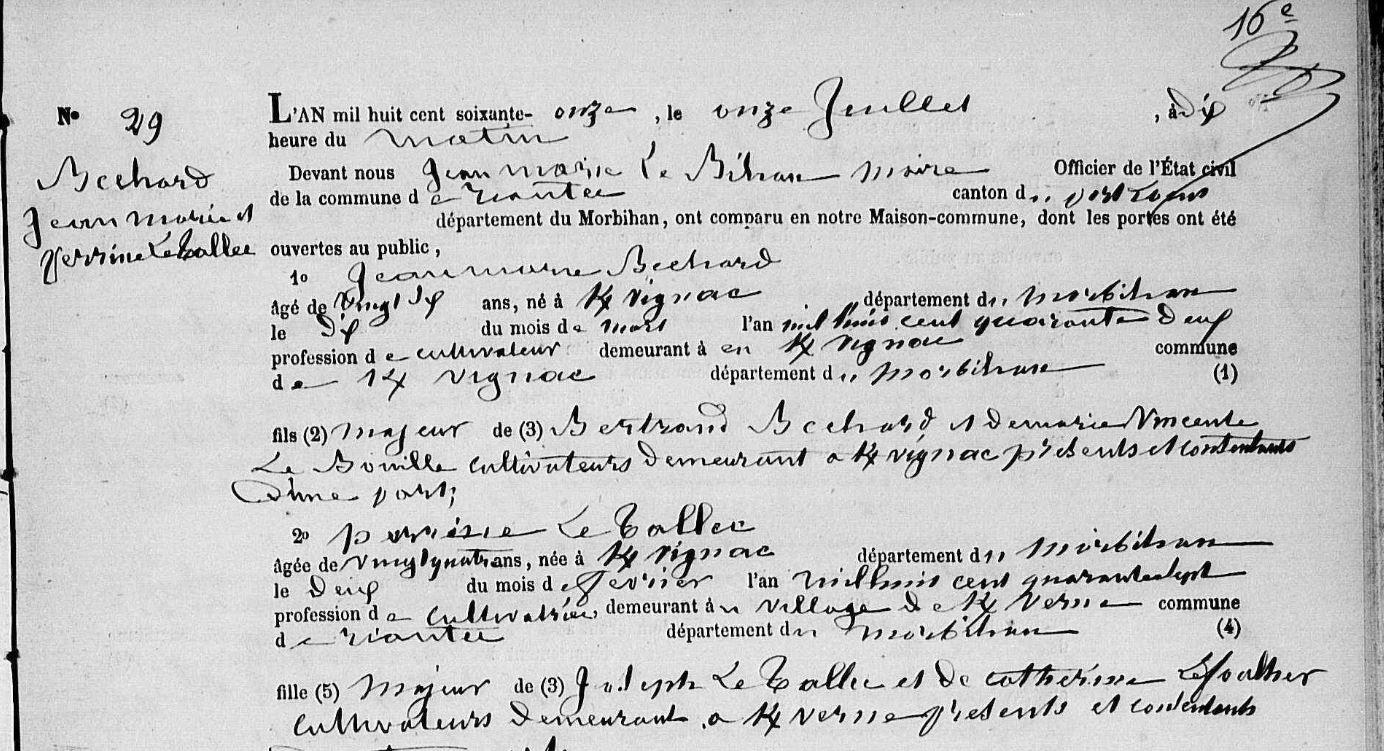 16e
No 29
Bechard
Jean Marie et
Perrine Le Tallec
L'AN mil huit cent soixante- onze , le onze Juillet , à dix
heure du matin
Devant nous Jean Marie Le Bihan maire Officier de l'État civil
de la commune de riantec canton du port Louis
département du Morbihan, ont comparu en notre Maison-commune, dont les portes ont été
ouvertes au public,
1o Jean marie Bechard
âgé de Vingt dix ans, né à Kvignac département du Morbihan
le dix du mois de mars l'an mil huit cent quarante deux
profession de cultivateur demeurant à en Kvignac commune
de Kvignac département du morbihan (1)
fils (2) majeur de (3) Bertrand Bechard et de marie Vincente
Le Bouille cultivateurs demeurant a Kvignac présents et contentants
d'une part;
2o perrine Le Tallec
âgée de vingt quatre ans, née à Kvignac département du Morbihan
le deux du mois de fevrier l'an mil huit cent quarante
profession de cultivatrice demeurant à u village de K Verne commune
de riantec département du Morbihan (4)
fille (5) majeur de (3) Joseph Le Tallec et de catherine
cultivateurs demeurant a K Verne présents et contentants